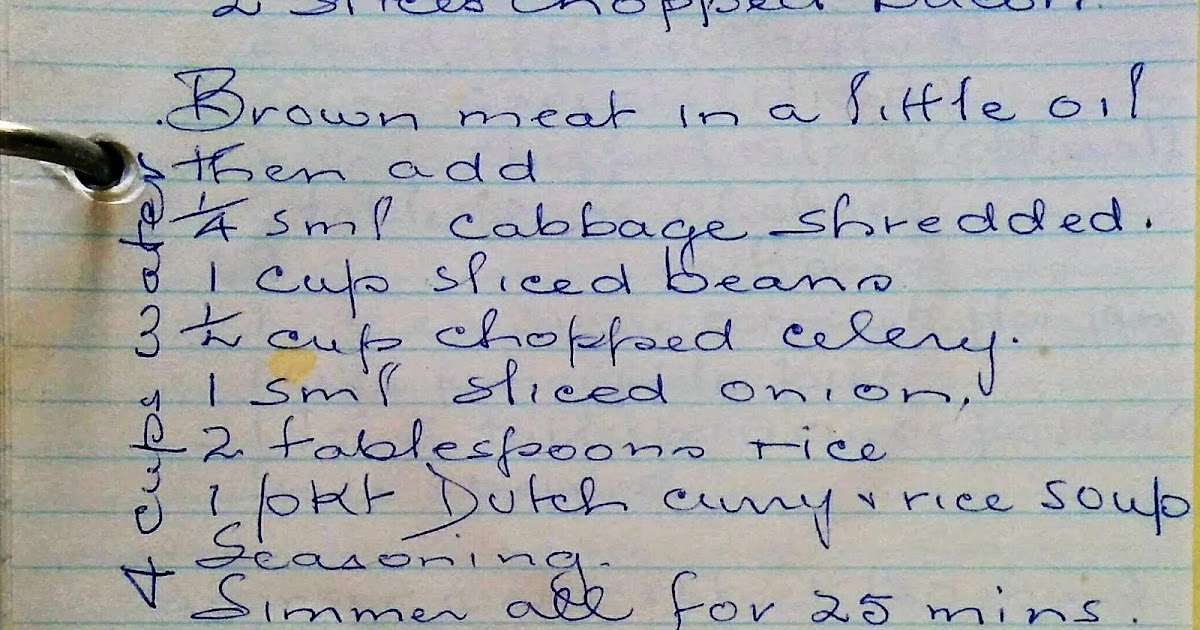 2 slices chopped bacon.
Brown meat in a little oil
then add
1/4 sml cabbage shredded.
1 cup sliced beans
1/2 cup chopped celery.
1 sml sliced onion,
2 tablespoons rice
1 pkt Dutch curry & rice soup
Seasoning.
Simmer all for 25 mins.
+ cups 3 water